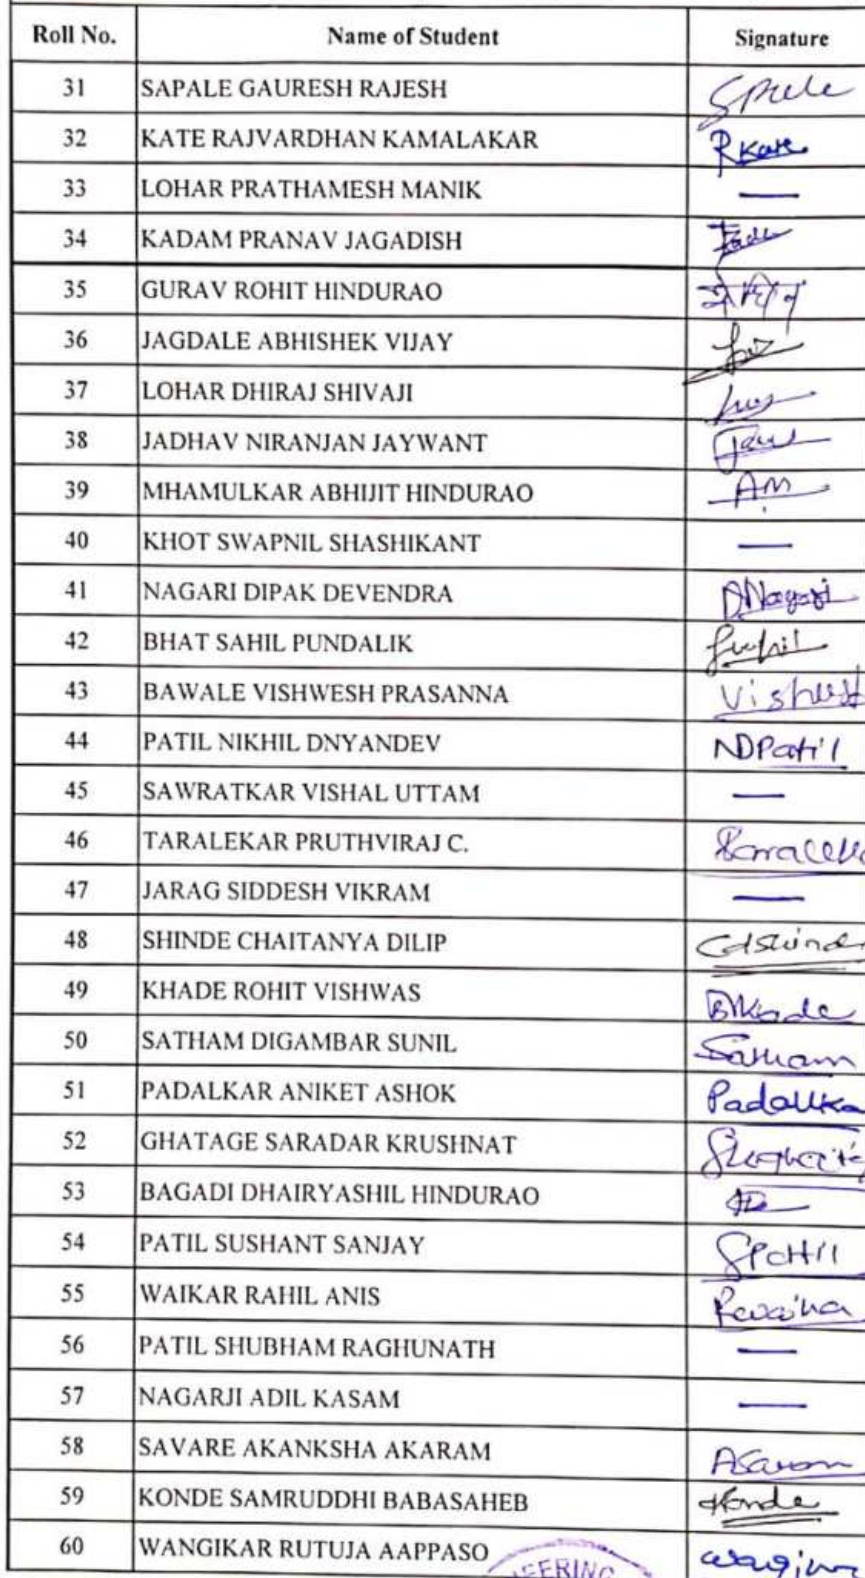 Roll No. Name of Student Signature
31 SAPALE GAURESH RAJESH
32 KATE RAJVARDHAN KAMALAKAR RKate
33 LOHAR PRATHAMESH MANIK —
34 KADAM PRANAV JAGADISH
35 GURAV ROHIT HINDURAO
36 JAGDALE ABHISHEK VIJAY
37 LOHAR DHIRAJ SHIVAJI
38 JADHAV NIRANJAN JAYWANT
39 MHAMULKAR ABHIJIT HINDURAO AM
40 KHOT SWAPNIL SHASHIKANT —
41 NAGARI DIPAK DEVENDRA DNagari
42 BHAT SAHIL PUNDALIK
43 BAWALE VISHWESH PRASANNA
44 PATIL NIKHIL DNYANDEV NDPatil
45 SAWRATKAR VISHAL UTTAM —
46 TARALEKAR PRUTHVIRAJ C.
47 JARAG SIDDESH VIKRAM —
48 SHINDE CHAITANYA DILIP
49 KHADE ROHIT VISHWAS
50 SATHAM DIGAMBAR SUNIL
51 PADALKAR ANIKET ASHOK
52 GHATAGE SARADAR KRUSHNAT
53 BAGADI DHAIRYASHIL HINDURAO
54 PATIL SUSHANT SANJAY SPatil
55 WAIKAR RAHIL ANIS
56 PATIL SHUBHAM RAGHUNATH —
57 NAGARJI ADIL KASAM —
58 SAVARE AKANKSHA AKARAM
59 KONDE SAMRUDDHI BABASAHEB Konde
60 WANGIKAR RUTUJA AAPPASO